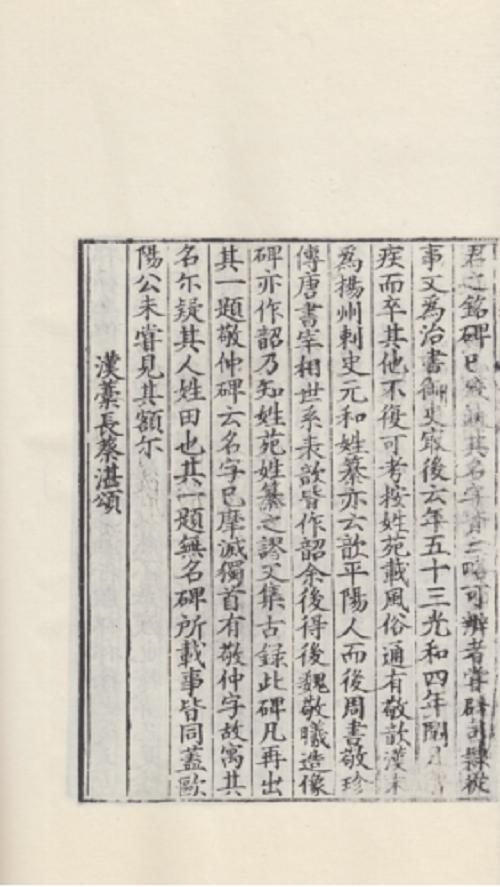 君之銘碑已殘缺其名字皆亡略可辨者嘗辟司隸從
事又為治書御史最後云年五十三光和四年閏月
疾而卒其他不復可考按姓苑載風俗通有敬歆漢末
為揚州刺史元和姓纂亦云歆平陽人而後周書敬珍
傳唐書宰相世系表歆皆作韶余後得後魏敬曦造像
碑亦作韶乃知姓苑姓纂之謬又集古録此碑凡再出
其一題敬仲碑云名字已摩滅獨首有敬仲字故寓其
名尓疑其人姓田也其一題無名碑所載事皆同蓋歐
陽公未嘗見其額尓
漢藁長蔡湛頌